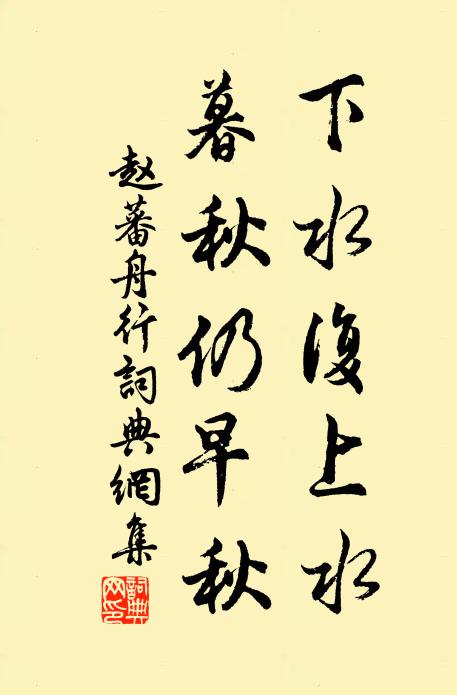 下水復上水
暮秋仍早秋
赵蕃舟行詞典網集
詞典网印